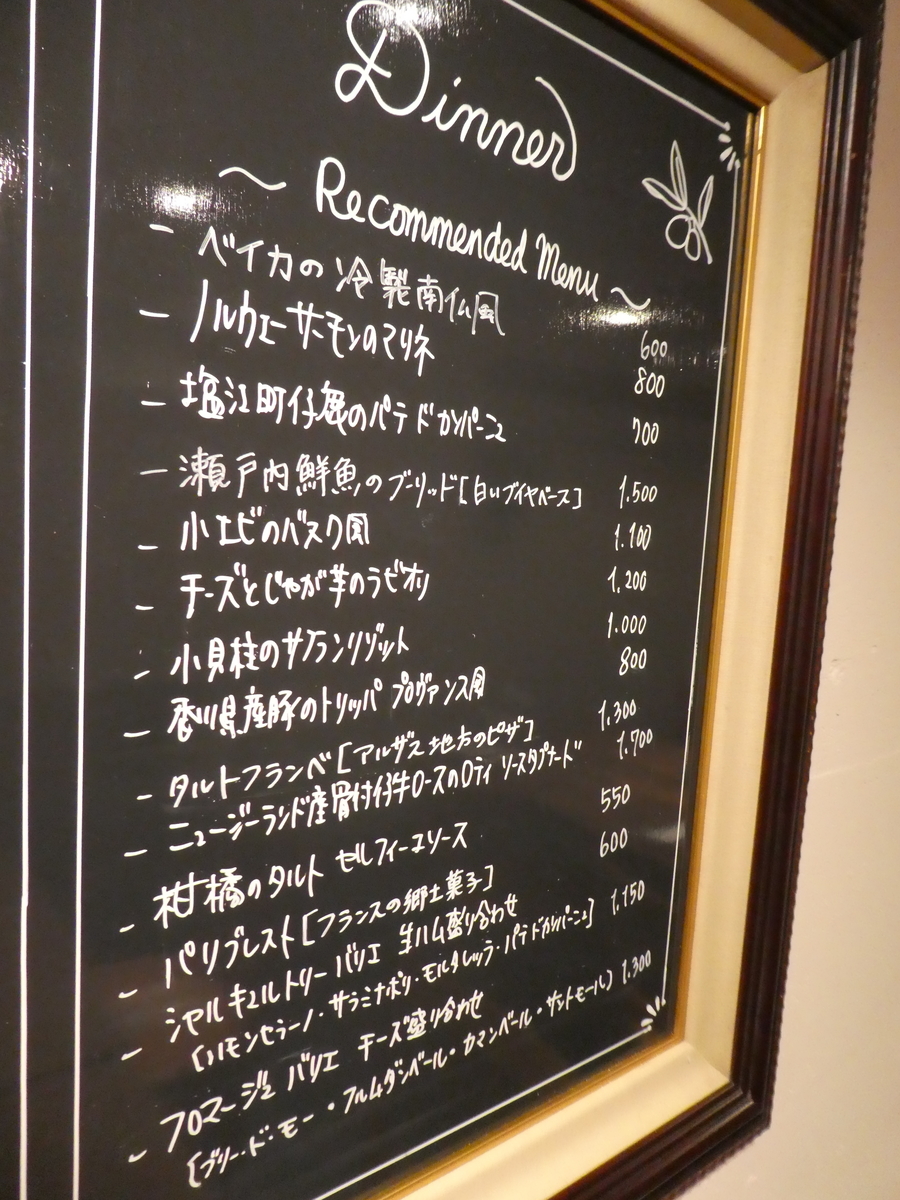 Dinner
~ Recommended Menu ~
- ベイカの冷製南仏風 600
- ノルウェーサーモンのマリネ 800
- 塩江町仔鹿のパテ ド カンパーニュ 700
- 瀬戸内鮮魚のブーリッド[白いブイヤベース] 1.500
- 小エビのバスク風 1.100
- チーズとじゃが芋のラビオリ 1.200
- 小貝柱のサフランリゾット 1.000
- 香川県産豚のトリッパ プロヴァンス風 800
- タルトフランベ[アルザス地方のピザ] 1.300
- ニュージーランド産骨付仔牛ロースのロティ ソースタプナード 1.700
- 柑橘のタルト ゼルフィーユソース 550
- パリブレスト[フランスの郷土菓子] 600
- シャルキュルトリー バリエ 生ハム盛り合わせ
[ハモンセラーノ・サラミナポリ・モルタレッラ・パテドカンパーニュ] 1.150
- フロマージュ バリエ チーズ盛り合わせ
[ブリー・ド・モー・フルムダンベール・カマンベール・サントモール] 1.300